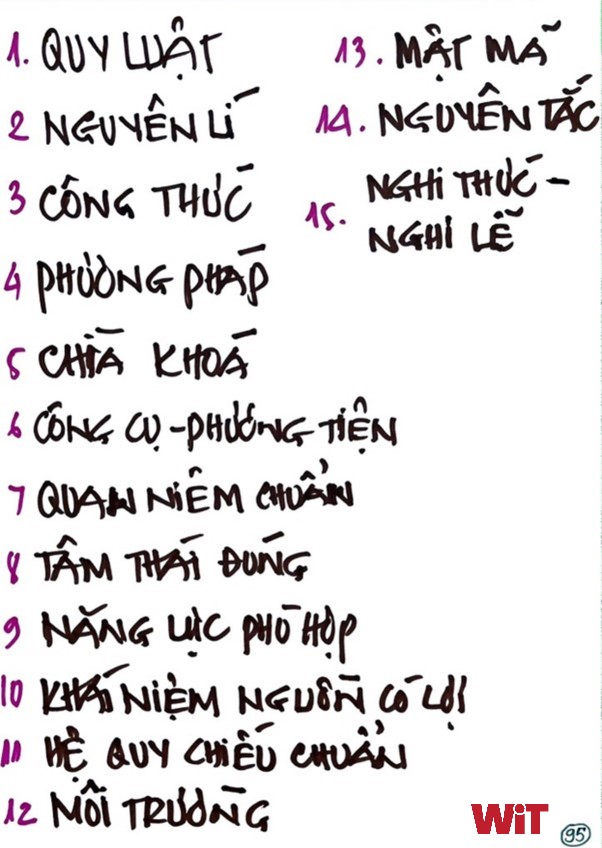 1. QUY LUẬT
2 NGUYÊN LÍ
3 CÔNG THỨC
4 PHƯƠNG PHÁP
5 CHÌA KHOÁ
6 CÔNG CỤ - PHƯƠNG TIỆN
7 QUAN NIỆM CHUẨN
8 TÂM THÁI ĐÚNG
9 NĂNG LỰC PHÙ HỢP
10 KHÁI NIỆM NGUỒN CÓ LỢI
11 HỆ QUY CHIẾU CHUẨN
12 MÔI TRƯỜNG
13. MẬT MÃ
14. NGUYÊN TẮC
15. NGHI THỨC -
NGHI LỄ
WiT
95